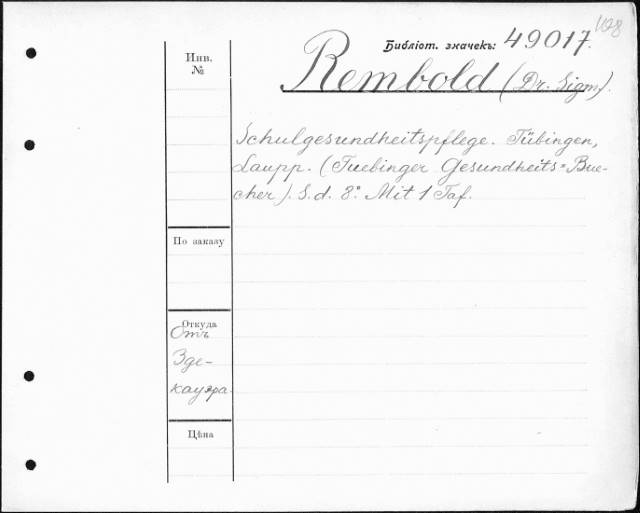 1128
Библіот. значекъ: 49017.
Инв.
№
Rembold (Dr. Sigm).
Schulgesundheitspflege. Tübingen,
Laupp. (Tuebinger Gesundheits=Bue-
cher). S. d. 8° Mit 1 Taf.
По заказу
Откуда
Отъ
Зде-
кауера
Цѣна